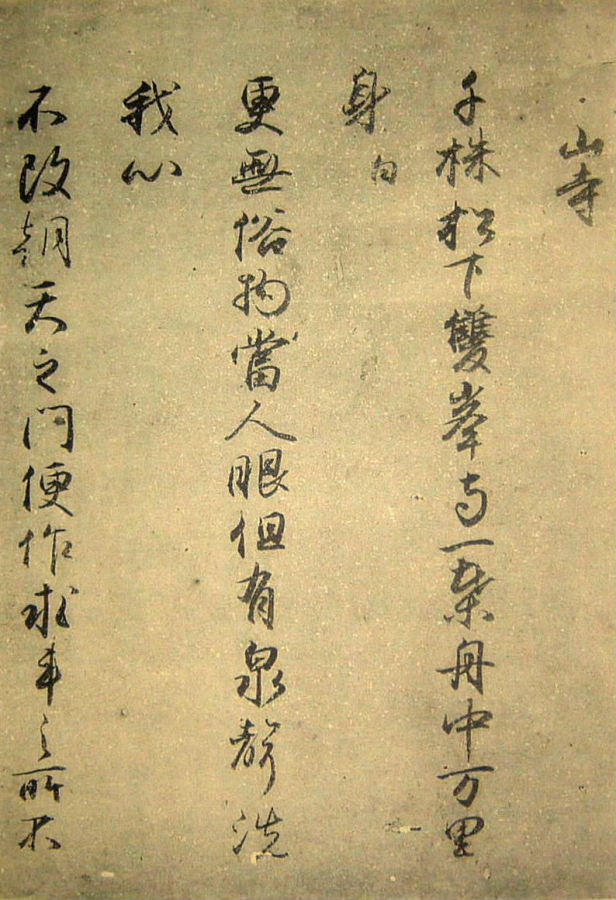 山寺
千株松下雙峯寺一葉舟中万里
身 白
更無俗物當人眼但有泉聲洗
我心
不改朝天之門便作求車之所不